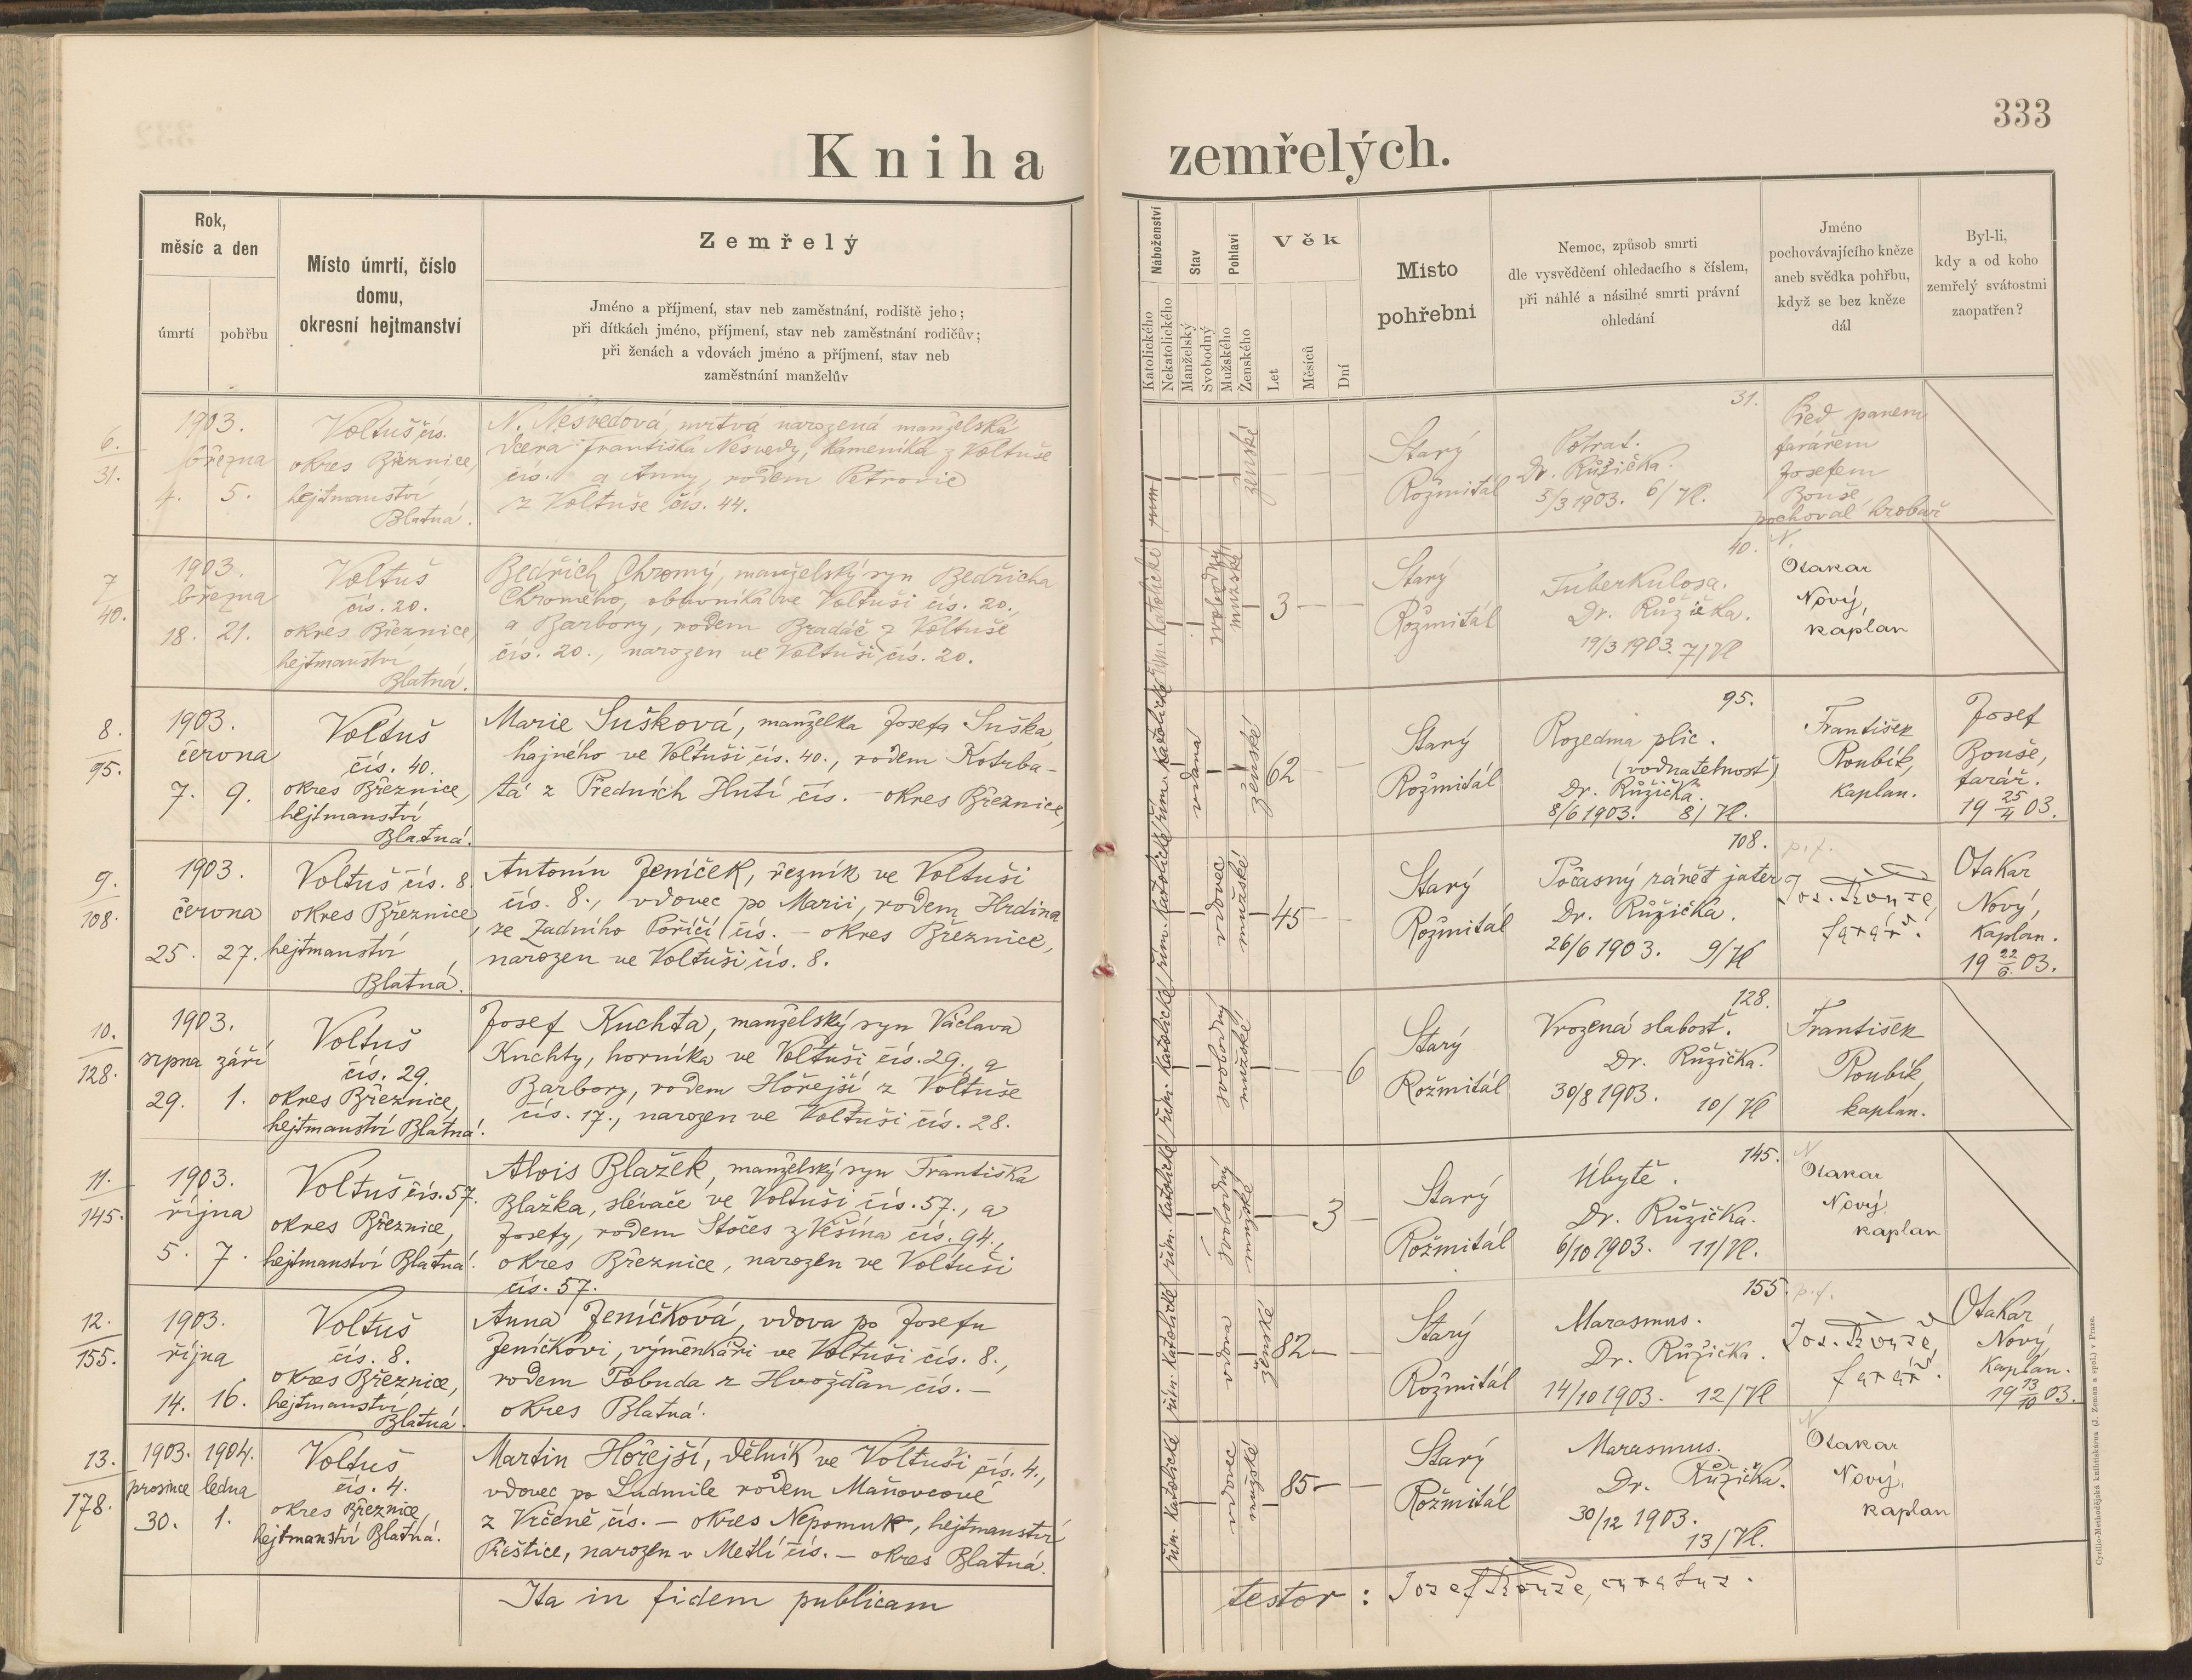 333
Kniha zemřelých.
Rok,
měsíc a den
úmrtí
pohřbu
Místo úmrtí, číslo
domu,
okresní hejtmanství
Zemřelý
Jméno a příjmení, stav neb zaměstnání, rodiště jeho;
při dítkách jméno, příjmení, stav neb zaměstnání rodičův;
při ženách a vdovách jméno a příjmení, stav neb
zaměstnání manželův
Náboženství
Katolického
Nekatolického
Stav
Manželský
Svobodný
Pohlaví
Mužského
Ženského
Věk
Let
Měsíců
Dní
Místo
pohřební
Nemoc, způsob smrti
dle vysvědčení ohledacího s číslem,
při náhlé a násilné smrti právní
ohledání
Jméno
pochovávajícího kněze
aneb svědka pohřbu,
když se bez kněze
dál
Byl-li,
kdy a od koho
zemřelý svátostmi
zaopatřen?
6.
31.
1903.
března
4. 5.
Voltuš čís.
okres Březnice,
hejtmanství
Blatná.
N. Nesvedová, mrtvá narozená manželská
dcera Františka Nesvedy, kameníka z Voltuše
čís. a Anny, rodem Petrovic
z Voltuše čís. 44.
římm
ženské
Starý
Rožmitál
31.
Potrat.
Dr. Růžička.
5/3 1903. 6/VI.
Před panem
farářem
Josefem
Bouše
pochoval hrobař
7
40.
1903.
března
18. 21.
Voltuš
čís. 20.
okres Březnice,
hejtmanství
Blatná.
Bedřich Chromý, manželský syn Bedřicha
Chromého, obuvníka ve Voltuši čís. 20.,
a Barbory, rodem Bradáč z Voltuše
čís. 20., narozen ve Voltuši čís. 20.
řím. katolické
svobodný
mužské
3
Starý
Rožmitál
40.
Tuberkulosa.
Dr. Růžička.
19/3 1903. 7/VI
Otakar
Nový,
kaplan
8.
95.
1903.
června
7. 9.
Voltuš
čís. 40.
okres Březnice,
hejtmanství
Blatná.
Marie Sušková, manželka Josefa Suška,
hajného ve Voltuši čís. 40., rodem Kotrba-
tá z Předních Hutí čís. – okres Březnice,
řím. katolické
vdaná
ženské
62
Starý
Rožmitál
95.
Rozedma plic.
(vodnatelnosť)
Dr. Růžička.
8/6 1903. 8/VI.
František
Roubík,
kaplan.
Josef
Bouše,
farář.
19 25/4 03.
9.
108.
1903.
června
25. 27.
Voltuš čís. 8.
okres Březnice,
hejtmanství
Blatná.
Antonín Jeníček, řezník ve Voltuši
čís. 8., vdovec po Marii, rodem Hrdina
ze Zadního Poříčí čís. – okres Březnice,
narozen ve Voltuši čís. 8.
řím. katolické
vdovec
mužské
45
Starý
Rožmitál
108.
Počasný zánět jater
Dr. Růžička.
26/6 1903. 9/VI
p.f.
Jos. Bouše,
farář.
Otakar
Nový,
kaplan.
19 22/6. 03.
10.
128.
1903.
srpna září
29. 1.
Voltuš
čís. 29.
okres Březnice,
hejtmanství Blatná.
Josef Kuchta, manželský syn Václava
Kuchty, horníka ve Voltuši čís. 29., a
Barbory, rodem Hořejší z Voltuše
čís. 17., narozen ve Voltuši čís. 28.
řím. katolické
svobodný
mužské
6
Starý
Rožmitál
128.
Vrozená slabosť.
Dr. Růžička.
30/8 1903. 10/VI
František
Roubík,
kaplan.
11.
145.
1903.
října
5. 7.
Voltuš čís. 57.
okres Březnice,
hejtmanství Blatná.
Alois Blažek, manželský syn Františka
Blažka, slévače ve Voltuši čís. 57., a
Josefy, rodem Stočes z Věšína čís. 94.,
okres Březnice, narozen ve Voltuši
čís. 57.
řím. katolické
svobodný
mužské
3
Starý
Rožmitál
145.
Úbytě.
Dr. Růžička.
6/10 1903. 11/VI.
Otakar
Nový,
kaplan
12.
155.
1903.
října
14. 16.
Voltuš
čís. 8.
okres Březnice,
hejtmanství
Blatná.
Anna Jeníčková, vdova po Josefu
Jeníčkovi, výměnkáři ve Voltuši čís. 8.,
rodem Pobuda z Hvožďan čís. –
okres Blatná.
řím. katolické
vdova
ženské
82
Starý
Rožmitál
155.
Marasmus.
Dr. Růžička.
14/10 1903. 12/VI
p.f.
Jos. Bouše,
farář.
Otakar
Nový,
kaplan.
19 13/10 03.
13.
178.
1903. 1904.
prosince ledna
30. 1.
Voltuš
čís. 4.
okres Březnice,
hejtmanství Blatná.
Martin Hořejší, dělník ve Voltuši čís. 4.,
vdovec po Ludmile rodem Maňovcové
z Vrčeně čís. – okres Nepomuk, hejtmanství
Přeštice, narozen v Metlí čís. – okres Blatná.
řím. katolické
vdovec
mužské
85
Starý
Rožmitál
Marasmus.
Dr. Růžička.
30/12 1903.
13/VI.
Otakar
Nový,
kaplan
Ita in fidem publicam
testor: Josef Bouše, curatus.
Cyrillo-Methodějská knihtiskárna (J. Zeman a spol.) v Praze.